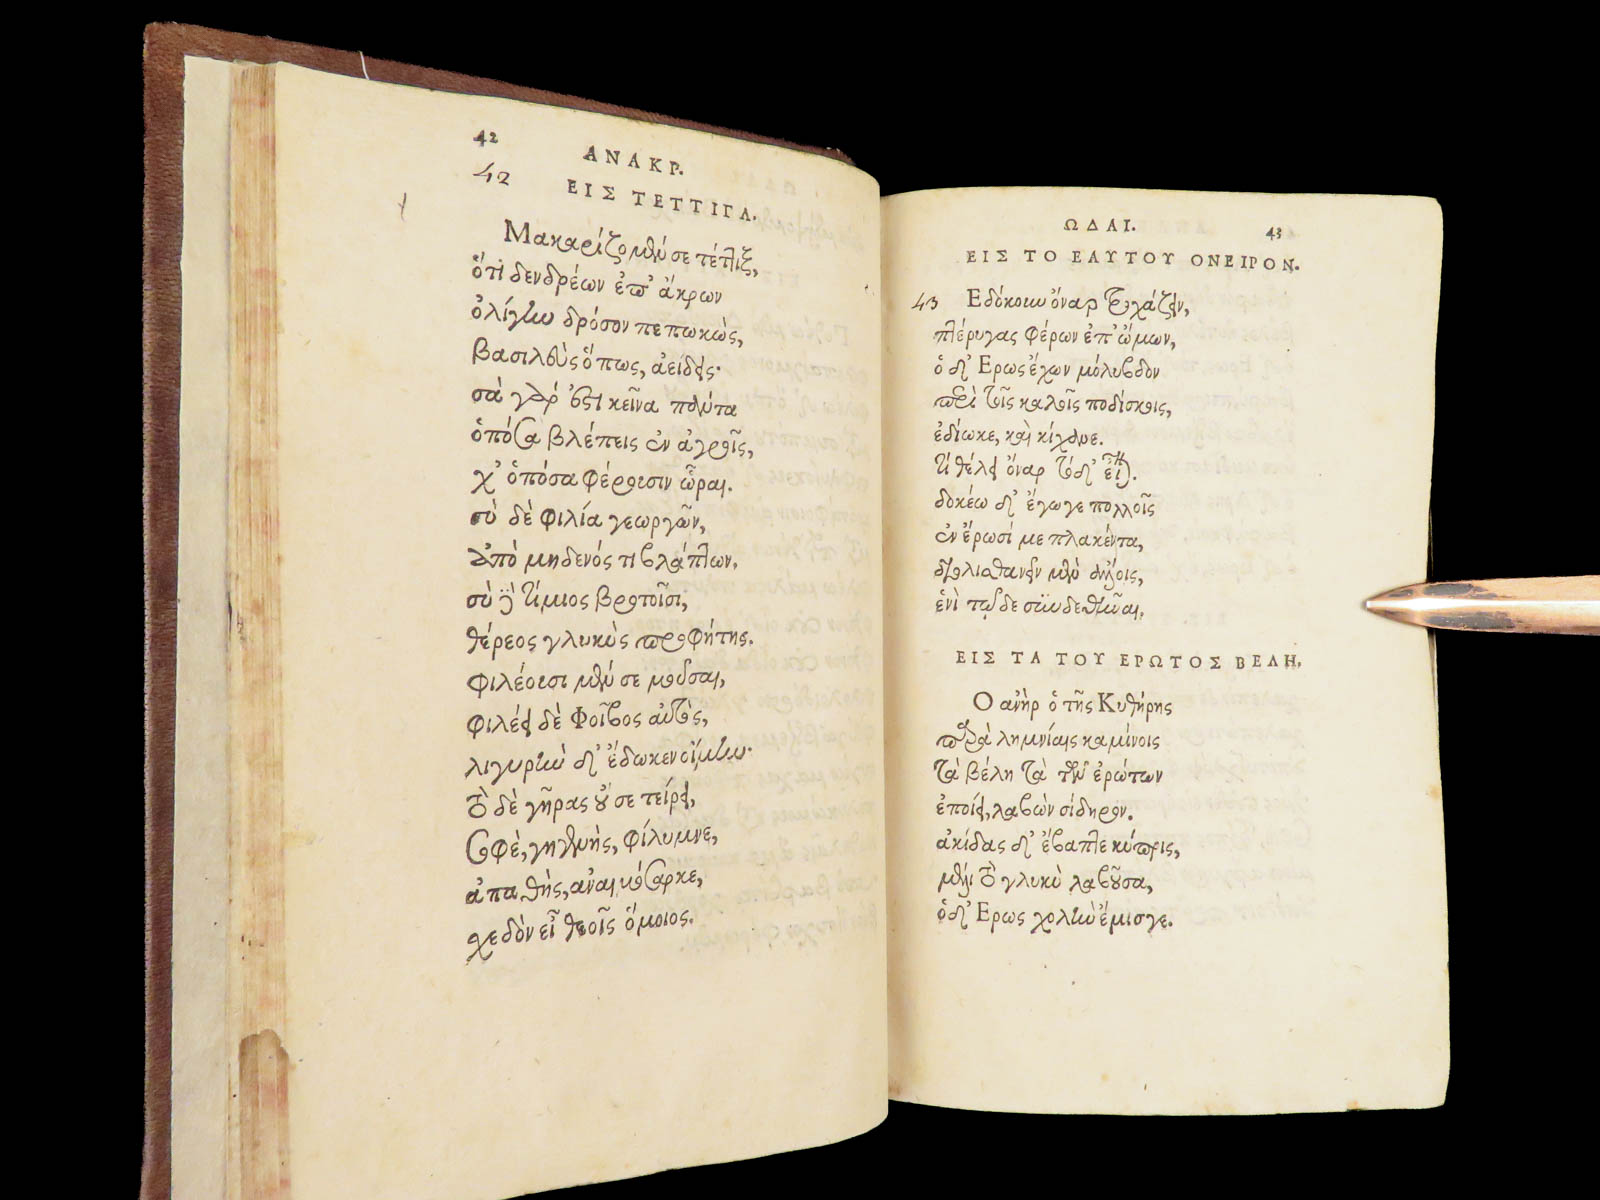 42
ΑΝΑΚΡ.
42
ΕΙΣ ΤΕΤΤΙΓΑ.
Μακαρίζομλύ σε τέτλιξ,
ὅτι δενδρέων ἐπ' ἄκρων
ὀλίγlω δρόσον πεπωκὼς,
βασιλεὺς ὅπως, ἀείδεις·
σὰ γάρ ἐστι κεῖνα πάντα
ὁπόσα βλέπεις ἐν ἀγροῖς,
χ' ὁπόσα φέρουσιν ὧραι.
σὺ δὲ φιλία γεωργῶν,
ἀπὸ μηδενός τι βλάπτων.
σὺ δὲ τίμιος βροτοῖσι,
θέρεος γλυκὺς προφήτης.
φιλέουσι μὲν σε μοῦσαι,
φιλέει δὲ Φοῖβος αὐτὸς,
λιγυρὴν δ' ἔδωκεν οἴμην·
τὸ δὲ γῆρας οὔ σε τείρει,
σοφὲ, γηγενὴς, φίλυμνε,
ἀπαθὴς, ἀναιμόσαρκε,
σχεδὸν εἶ θεοῖς ὅμοιος.
ΩΔΑΙ.
43
ΕΙΣ ΤΟ ΕΑΥΤΟΥ ΟΝΕΙΡΟΝ.
43
Εδόκουν ὄναρ τροχάζειν,
πτέρυγας φέρων ἐπ' ὤμων,
ὁ δ' Ερως ἔχων μόλυβδον
περὶ τοῖς καλοῖς ποδίσκοις,
ἐδίωκε, καὶ κίχανε.
τί θέλει ὄναρ τόδ' εἶναι.
δοκέω δ' ἔγωγε πολλοῖς
ἐν ἔρωσί με πλακέντα,
διολισθάνειν μὲν ἄλλοις,
ἑνὶ τῷδε συνδεθῆναι.
ΕΙΣ ΤΑ ΤΟΥ ΕΡΩΤΟΣ ΒΕΛΗ.
Ο ἀνὴρ ὁ τῆς Κυθήρης
παρὰ λημνίαις καμίνοις
τὰ βέλη τὰ τῶν ἐρώτων
ἐποίει, λαβὼν σίδηρον.
ἀκίδας δ' ἔβαπτε κύπρις,
μέλι τὸ γλυκὺ λαβοῦσα,
ὁ δ' Ερως χολὴν ἔμισγε.